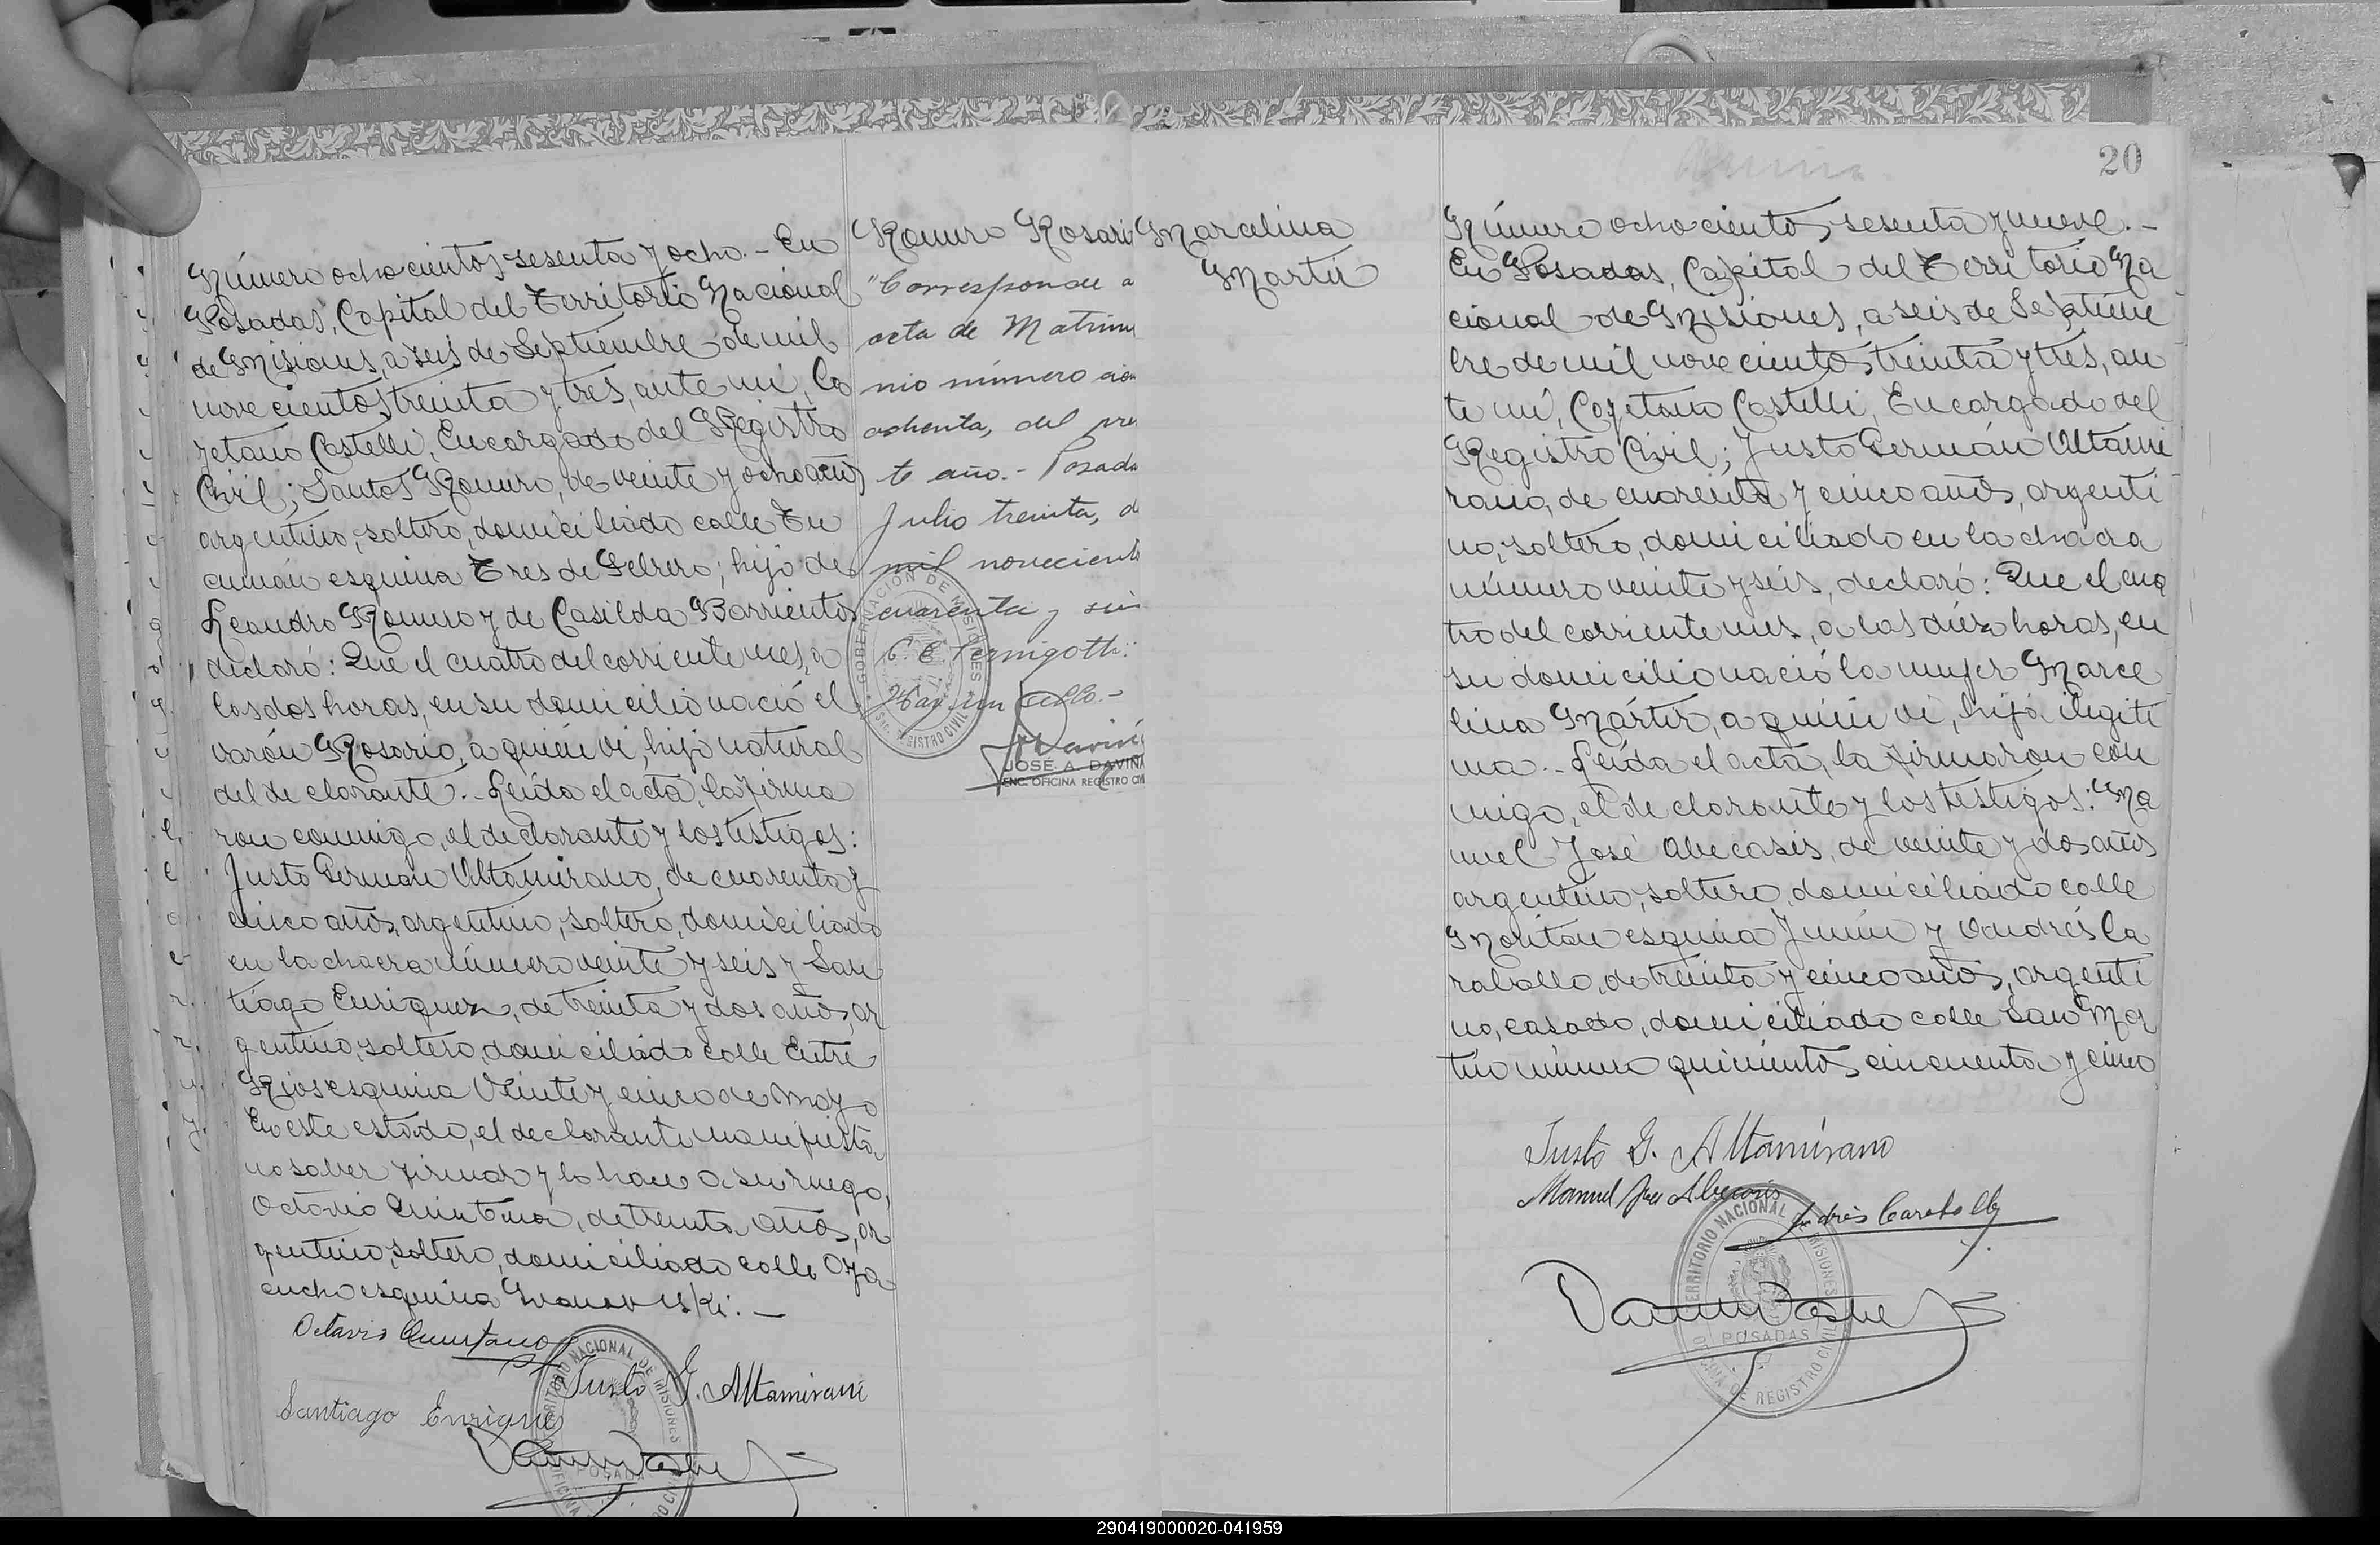 Número ochocientos sesenta y ocho.- En
Posadas, Capital del Territorio Nacional
de Misiones, a seis de Septiembre de mil
novecientos treinta y tres, ante mí, Ca
yetano Castelli, Encargado del Registro
Civil; Santos Romero, de veinte y ocho años
argentino, soltero, domiciliado calle Tu
cumán esquina Tres de Febrero; hijo de
Leandro Romero y de Casilda Barrientos
declaró: Que el cuatro del corriente mes, a
las dos horas, en su domicilio nació el
varón Rosario, a quien vi, hijo natural
del declarante.- Leída el acta, la firma
ron conmigo, el declarante y los testigos:
Justo Germán Altamirano, de cuarenta y
cinco años, argentino, soltero, domiciliado
en la chacra número veinte y seis y San
tiago Enriquez, de treinta y dos años, ar
gentino, soltero, domiciliado calle Entre
Rios esquina Veinte y cinco de Mayo
En este estado, el declarante manifestó
no saber firmar y lo hace a su ruego,
Octavio Quintana, de treinta años, ar
gentino, soltero, domiciliado calle Aya
cucho esquina
Octavio Quintano
Justo G. Altamirano
Santiago Enrique
TERRITORIO NACIONAL DE MISIONES
POSADAS
Romero Rosari
"Corresponde a
acta de Matrim
nio número cien
ochenta, del pre
te año.- Posada
Julio treinta, d
mil noveciento
cuarenta y
Hay un sello.-
GOBERNACION DE MISIONES
REGISTRO CIVIL
JOSÉ A. DAVIÑA
ENC. OFICINA REGISTRO CIVI
Marcelina
Martir
20
Número ochocientos sesenta y nueve.-
En Posadas, Capital del Territorio Na
cional de Misiones, a seis de Septiem
bre de mil novecientos treinta y tres, an
te mí, Cayetano Castelli, Encargado del
Registro Civil; Justo Germán Altami
rano, de cuarenta y cinco años, argenti
no, soltero, domiciliado en la chacra
número veinte y seis, declaró: Que el cua
tro del corriente mes, a las diez horas, en
su domicilio nació la mujer Marce
lina Mártir, a quien vi, hija ilegíti
ma.- Leída el acta, la firmaron con
migo, el declarante y los testigos: Ma
nuel José Abecasis, de veinte y dos años
argentino, soltero, domiciliado calle
Moritán esquina Junín y Andrés Ca
raballo, de treinta y cinco años, argenti
no, casado, domiciliado calle San Mar
tín número quinientos cincuenta y cinco
Justo G. Altamirano
Manuel José Abecasis
Andrés Caraballo
TERRITORIO NACIONAL DE MISIONES
POSADAS
OFICINA DE REGISTRO CIVIL
290419000020-041959